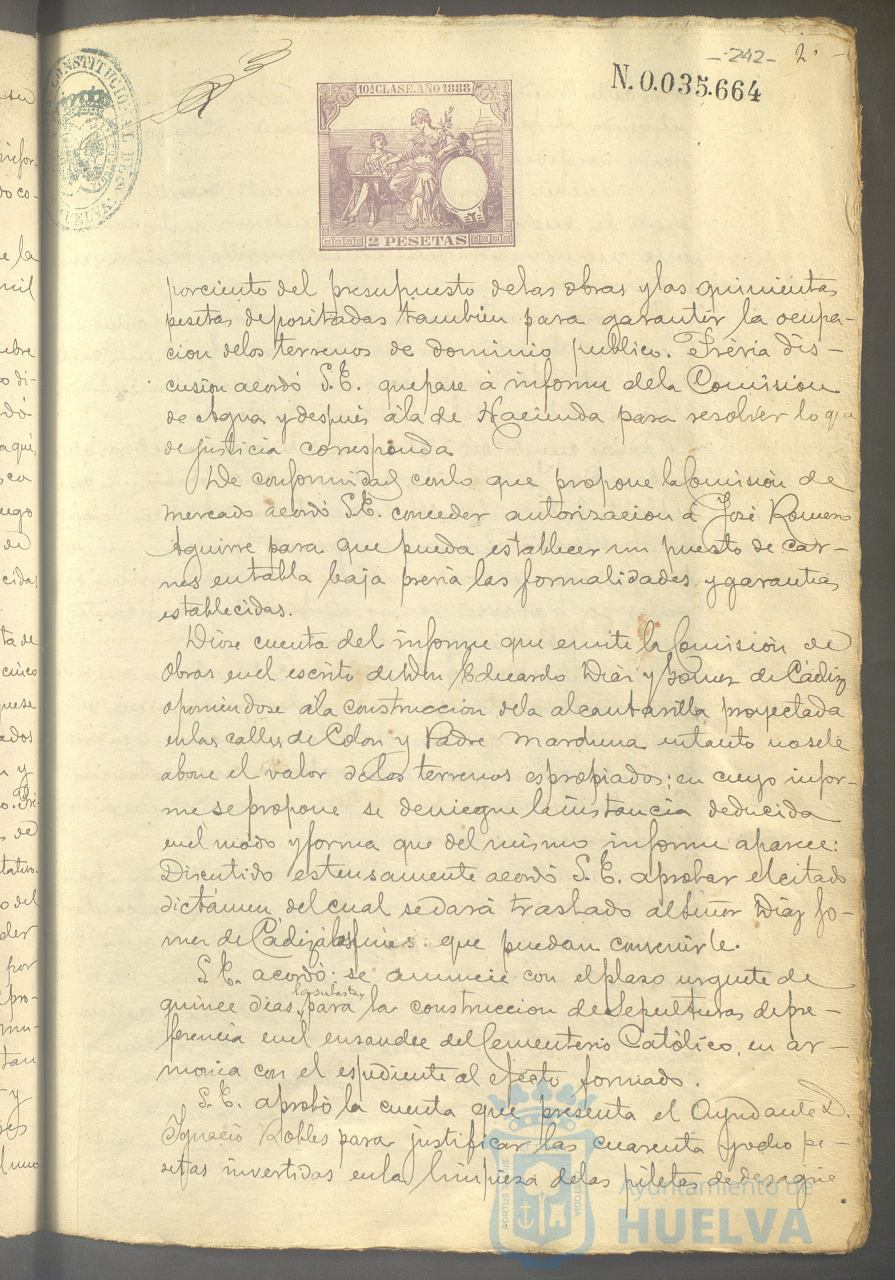 -242- 2
N.0.035.664
CONSTITUCIONAL DE
HUELVA
10ª CLASE. AÑO 1888
2 PESETAS
porciento del presupuesto delas obras y las quinientas
pesetas depositadas tambien para garantir la ocupa-
cion delos terrenos de dominio publico. Prévia dis-
cusion acordó S.E. quepase á informe dela Comision
de Agua y despues ála de Hacienda para resolver lo que
de justicia corresponda
De conformidad conlo que propone la Comision de
mercado acordó S.E. conceder autorizacion á José Romero
Aguirre para que pueda establecer un puesto de car-
nes entabla baja prévia las formalidades y garantias
establecidas.
Diose cuenta del informe que emite la Comision de
Obras enel escrito de Don Eduardo Diaz y Gomez de Cádiz
oponiendose ála construccion dela alcantarilla proyectada
enlas calles de Colon y Padre Marchena entanto nosele
abone el valor delos terrenos espropiados; en cuyo infor-
me sepropone se deniegue la instancia deducida
enel modo y forma que del mismo informe aparece:
Discutido estensamente acordó S.E. aprobar elcitado
dictámen del cual sedará traslado alSeñor Diaz Go-
mez de Cádiz álos fines que puedan convenirle.
S.E. acordó se anuncie con elplazo urgente de
quince dias la subasta para la construccion de Sepulturas depre-
ferencia enel ensanche del Cementerio Católico, en ar-
monia con el espediente al efecto formado.
S.E. aprobó la cuenta que presenta el Ayudante D.
Ignacio Robles para justificar las cuarenta yocho pe-
setas invertidas enla limpieza delas piletas de desagüe
PORTUS
CUSTODIA
Ayuntamiento de
HUELVA